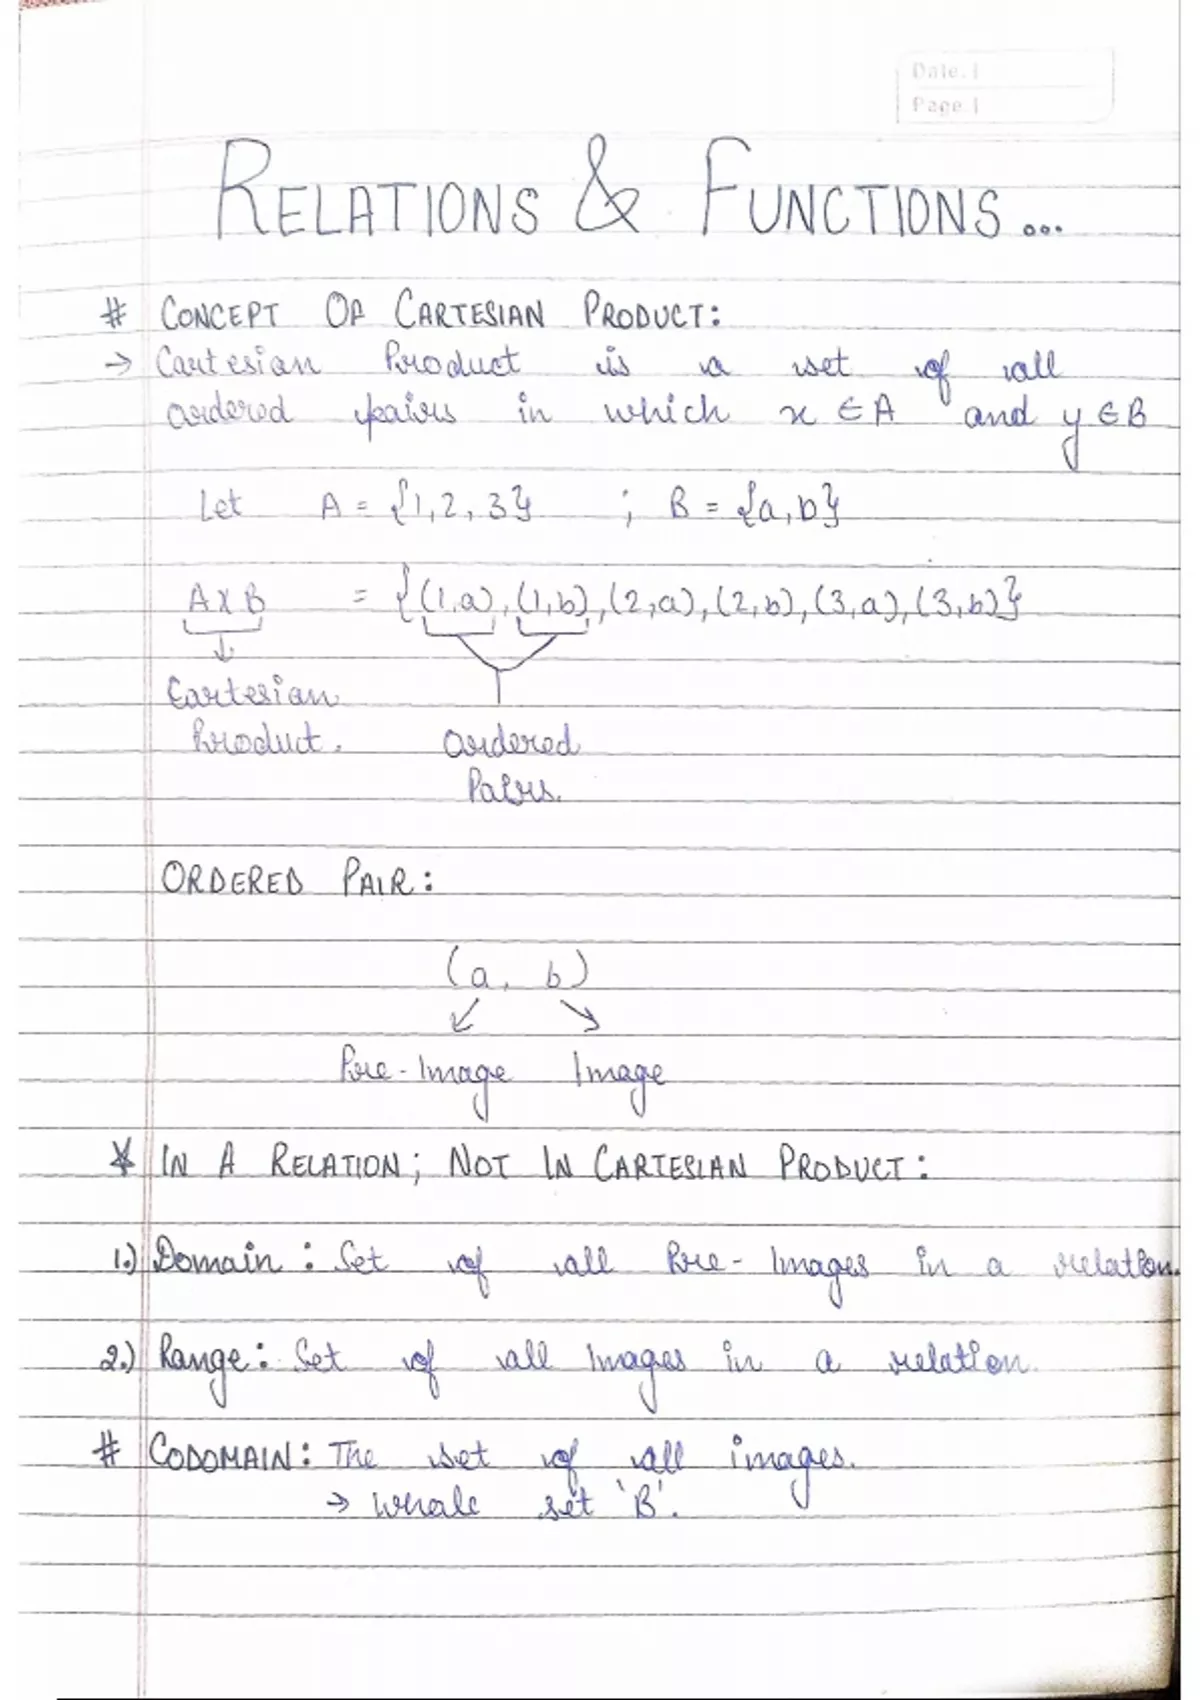 Date. |
Page |
RELATIONS & FUNCTIONS...
# CONCEPT OF CARTESIAN PRODUCT:
→ Cartesian Product is a set of all
ordered pairs in which x ∈ A and y ∈ B
Let A = {1, 2, 3} ; B = {a, b}
A X B = {(1, a), (1, b), (2, a), (2, b), (3, a), (3, b)}
↓
Cartesian
Product.
Ordered
Pairs.
ORDERED PAIR:
(a, b)
↙ ↘
Pre-Image Image
* IN A RELATION; NOT IN CARTESIAN PRODUCT:
1.) Domain: Set of all Pre-Images in a relation.
2.) Range: Set of all Images in a relation.
# CODOMAIN: The set of all images.
→ whole set 'B'.